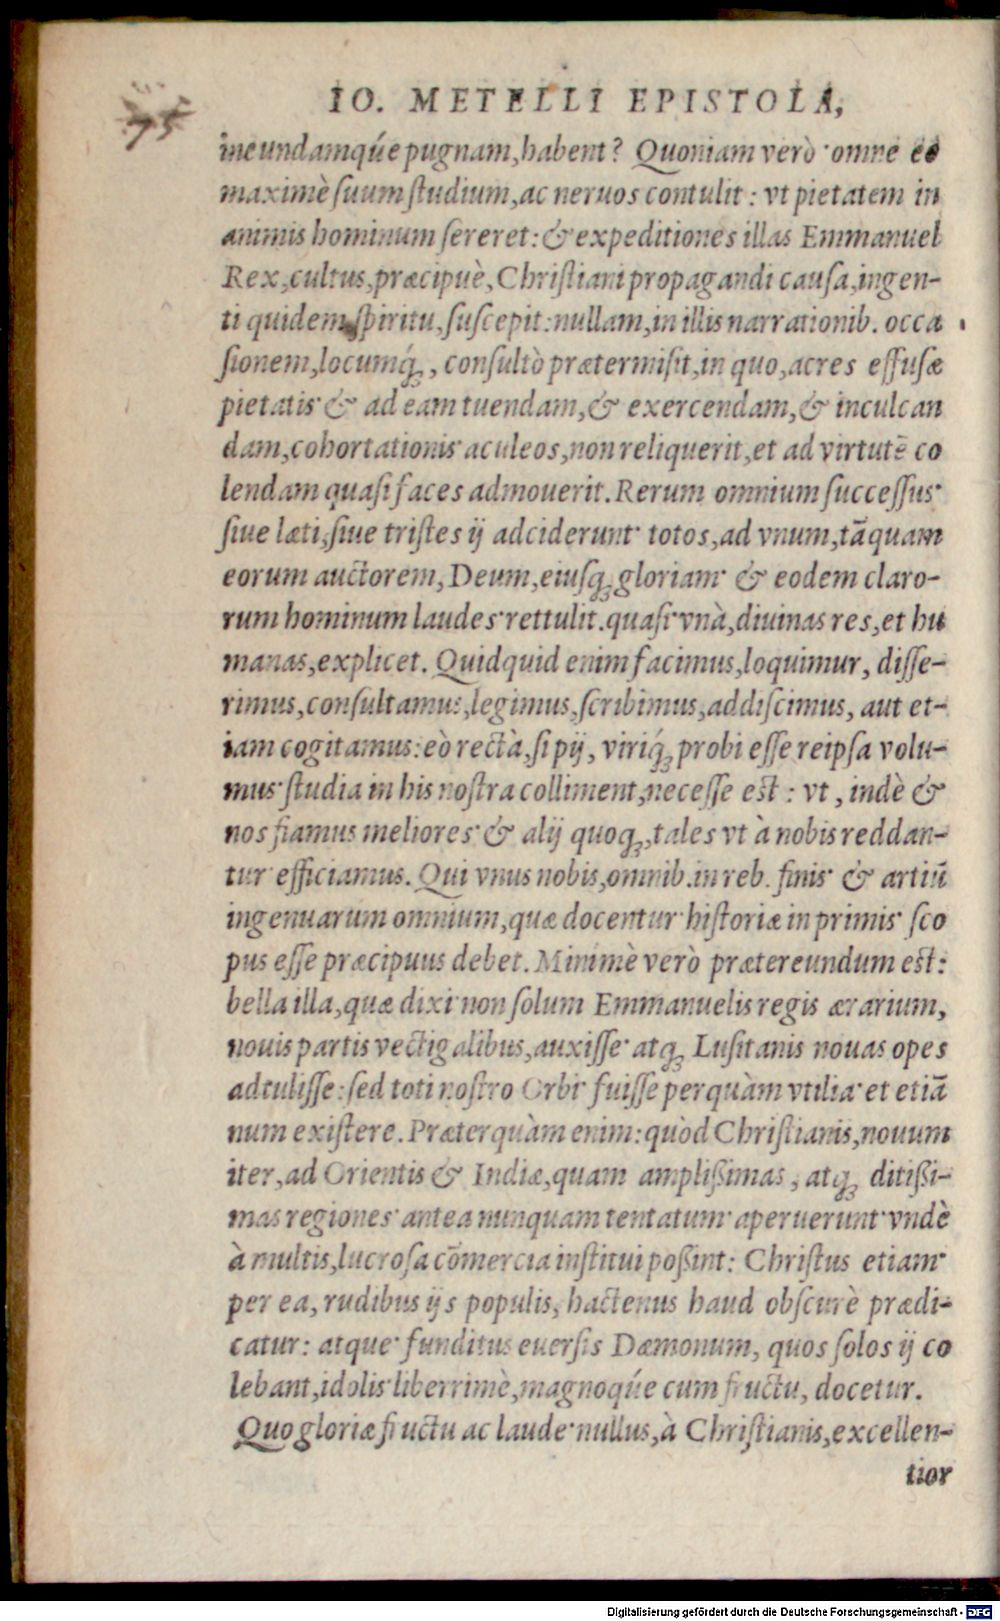 75
IO. METELLI EPISTOLA,
ineundamq́ue pugnam, habent? Quoniam verò omne eò
maximè suum studium, ac neruos contulit: vt pietatem in
animis hominum sereret: & expeditiones illas Emmanuel
Rex, cultus, præcipuè, Christiani propagandi causa, ingen-
ti quidem spiritu, suscepit: nullam, in illis narrationib. occa
sionem, locumq́;, consultò prætermisit, in quo, acres effusæ
pietatis & ad eam tuendam, & exercendam, & inculcan
dam, cohortationis aculeos, non reliquerit, et ad virtutē co
lendam quasi faces admouerit. Rerum omnium successus
siue læti, siue tristes ij adciderunt totos, ad vnum, tāquam
eorum auctorem, Deum, eiusq; gloriam & eodem claro-
rum hominum laudes rettulit. quasi vnà, diuinas res, et hu
manas, explicet. Quidquid enim facimus, loquimur, disse-
rimus, consultamus, legimus, scribimus, addiscimus, aut et-
iam cogitamus: eò rectà, si pij, viriq́; probi esse reipsa volu-
mus studia in his nostra colliment, necesse est: vt, indè &
nos fiamus meliores & alij quoq;, tales vt à nobis reddan-
tur efficiamus. Qui vnus nobis, omnib. in reb. finis & artiū
ingenuarum omnium, quæ docentur historiæ in primis sco
pus esse præcipuus debet. Minimè verò prætereundum est:
bella illa, quæ dixi non solum Emmanuelis regis ærarium,
nouis partis vectigalibus, auxisse atq; Lusitanis nouas opes
adtulisse: sed toti nostro Orbi fuisse perquàm vtilia et etiā
num existere. Præterquàm enim: quòd Christianis, nouum
iter, ad Orientis & Indiæ, quam amplißimas, atq; ditißi-
mas regiones antea nunquam tentatum aperuerunt vndè
à multis, lucrosa cōmercia institui poßint: Christus etiam
per ea, rudibus ijs populis, hactenus haud obscurè prædi-
catur: atque funditus euersis Dæmonum, quos solos ij co
lebant, idolis liberrimè, magnoq́ue cum fructu, docetur.
Quo gloriæ fructu ac laude nullus, à Christianis, excellen-
tior
Digitalisierung gefördert durch die Deutsche Forschungsgemeinschaft - DFG